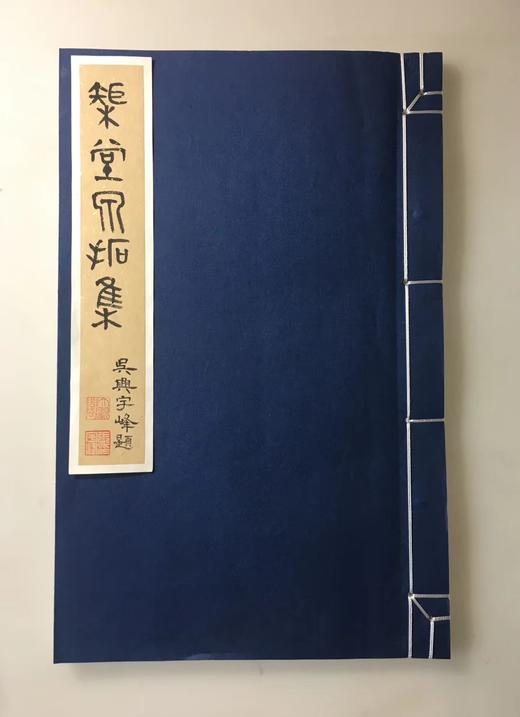 榘堂泉拓集
吳興宇峰題